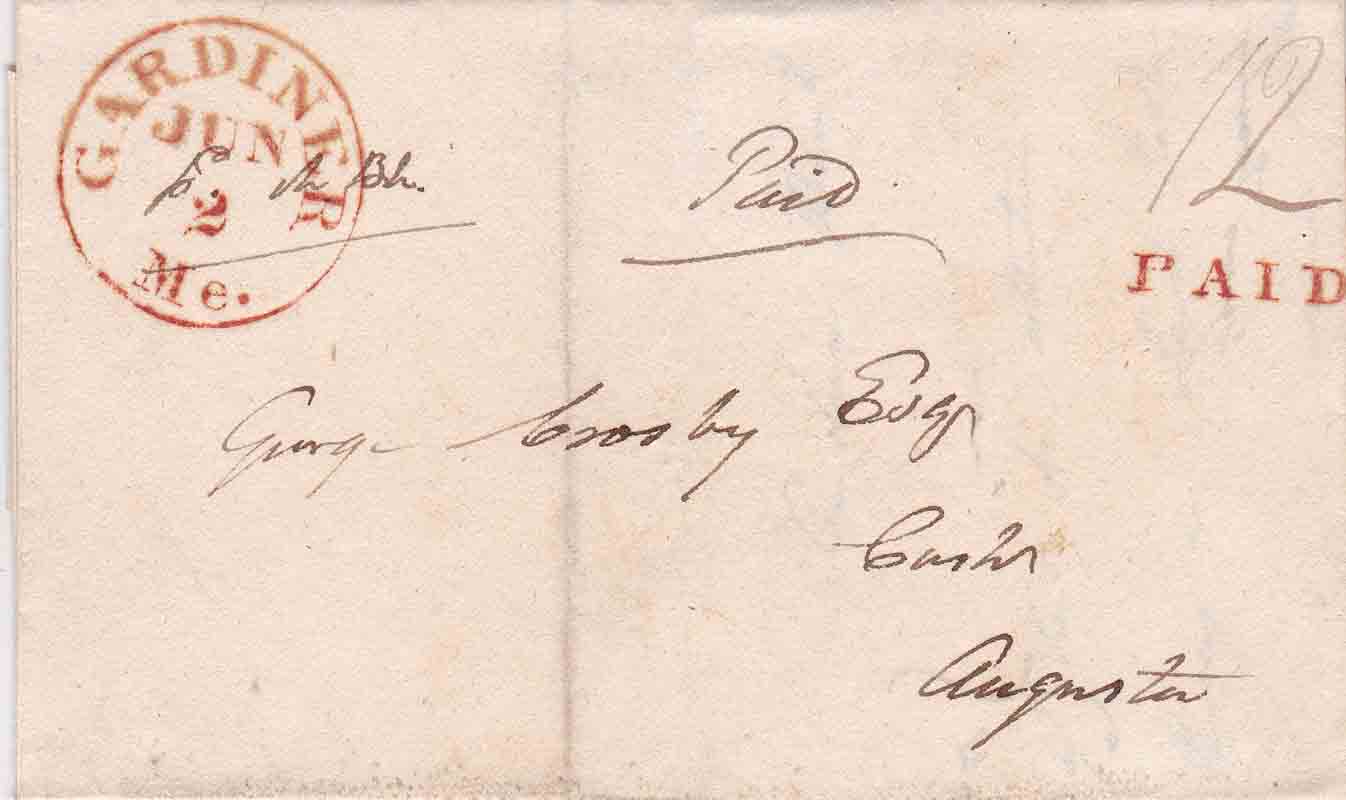 GARDINER
JUN
2
Me.
Paid
12
PAID
George Crosby Esqr
Cashr
Augusta